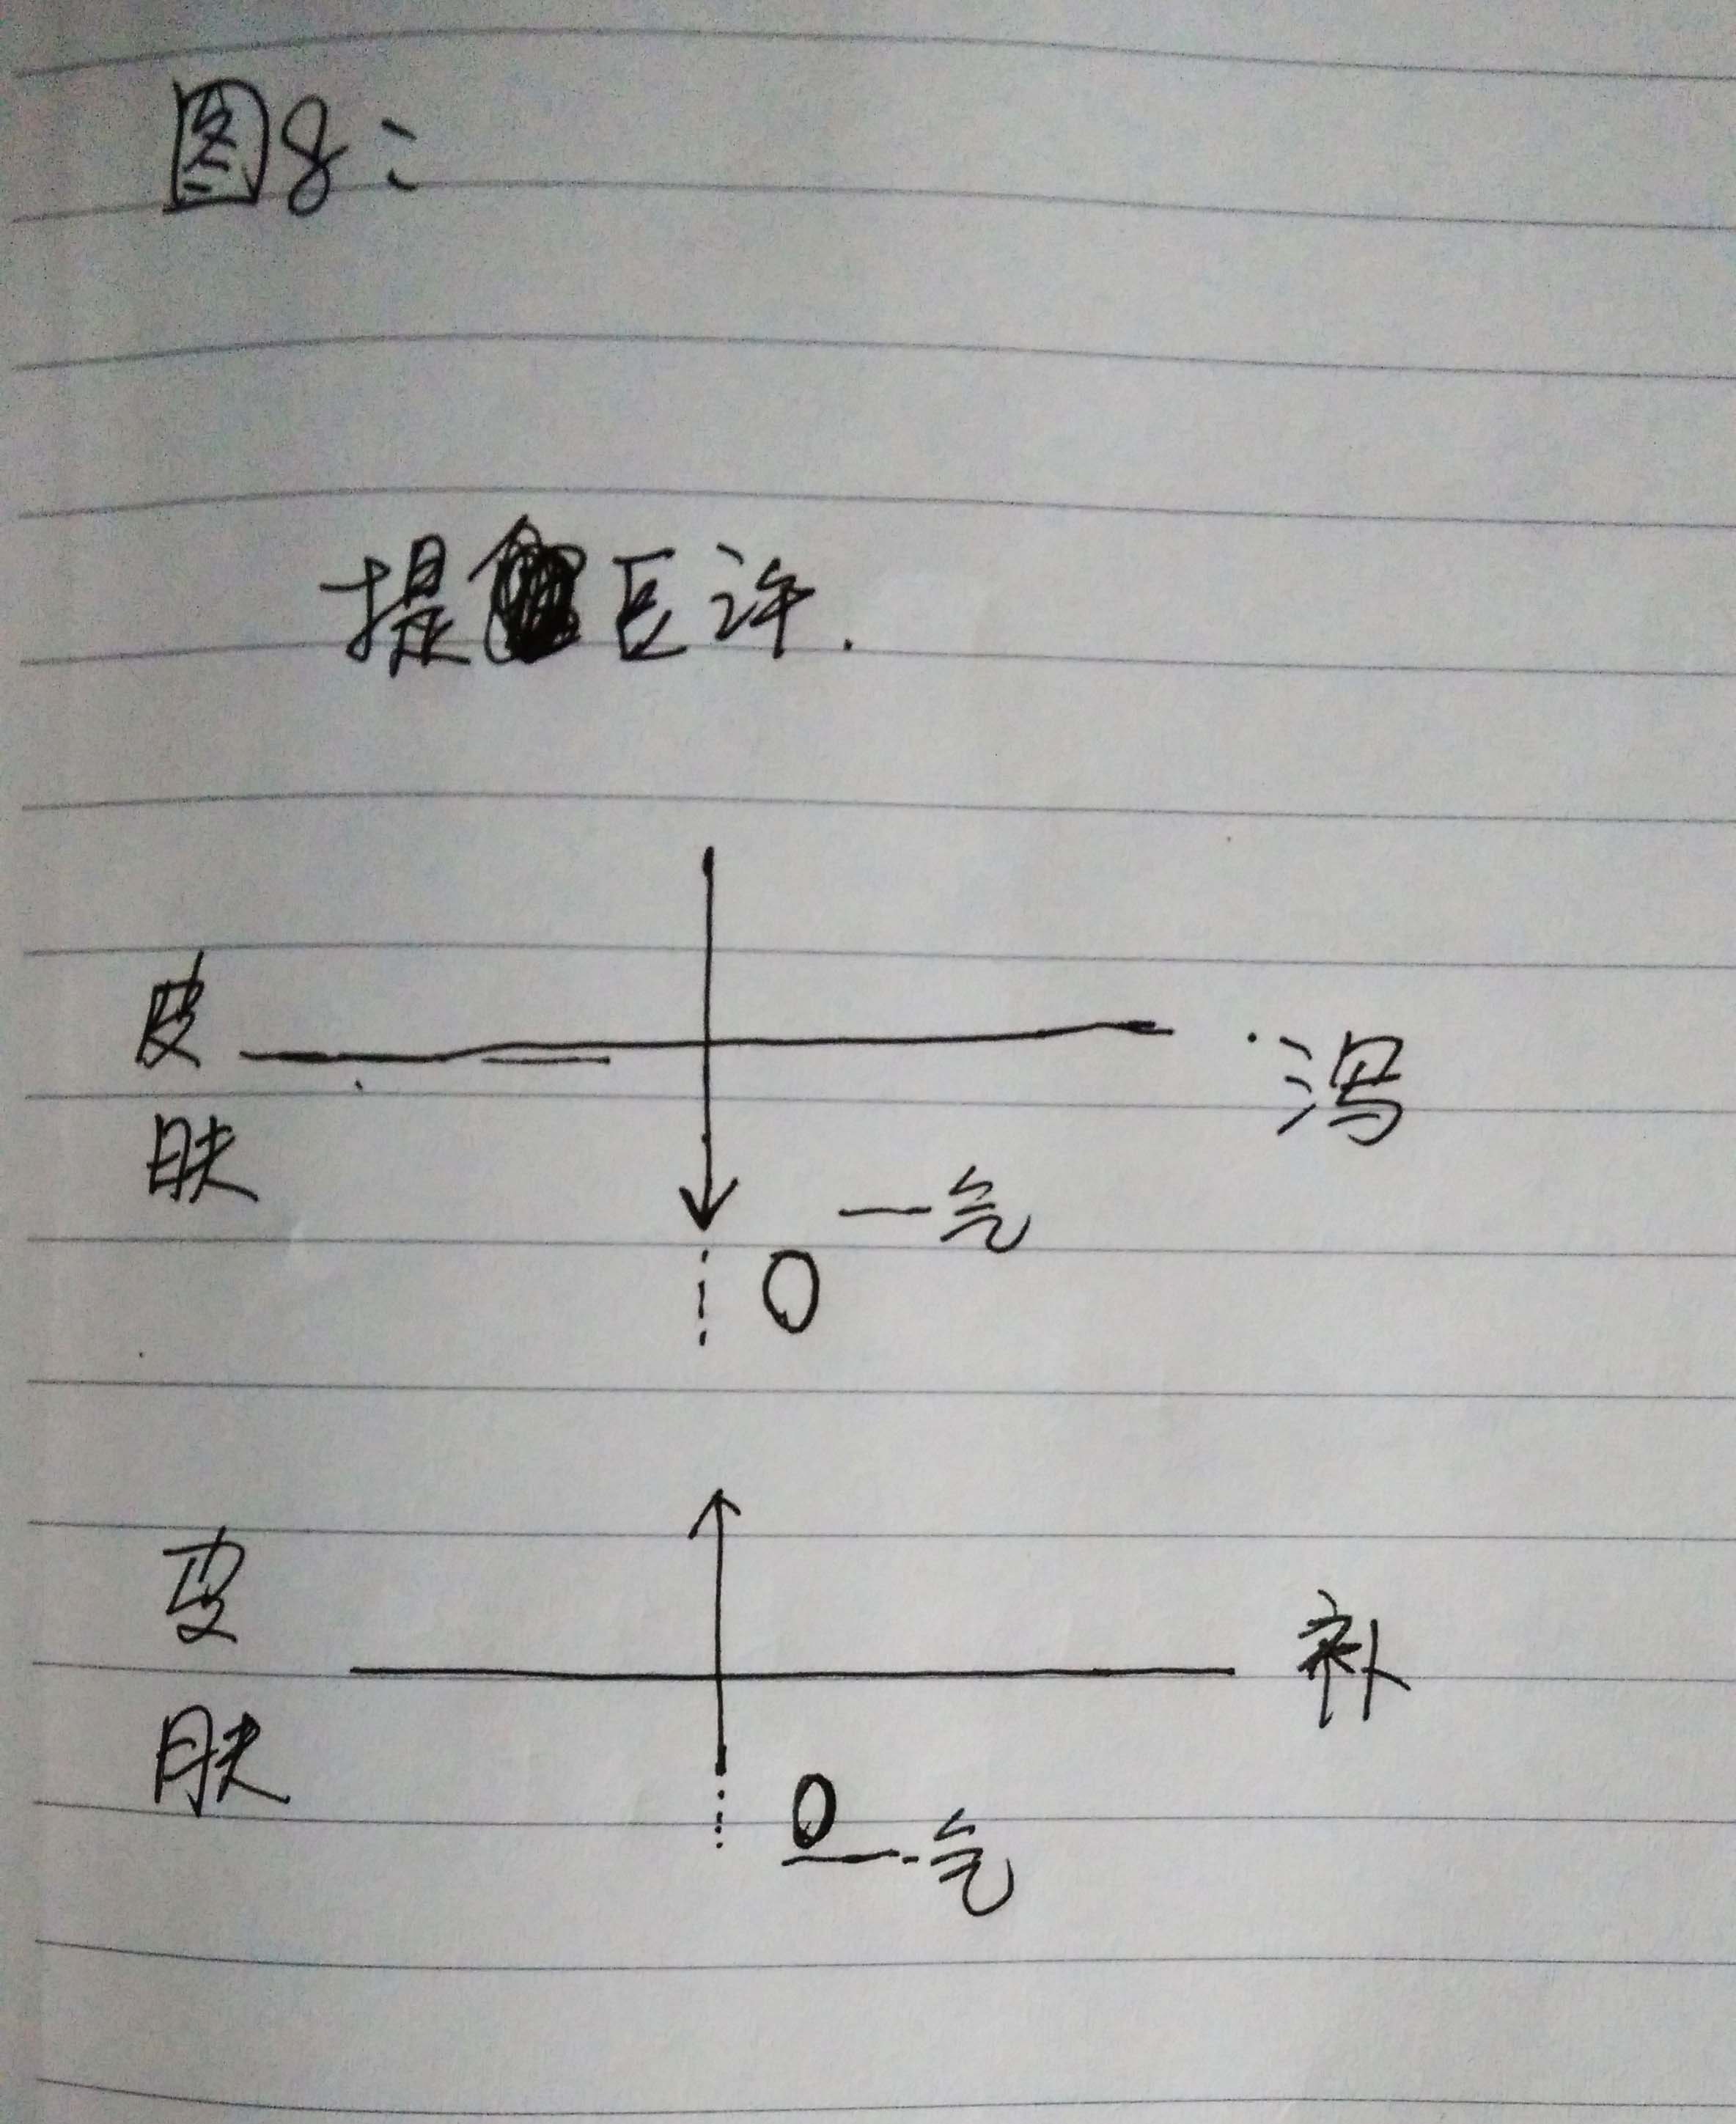 图8：
提巨许.
皮肤
泻
一气
0
皮肤
补
0
气